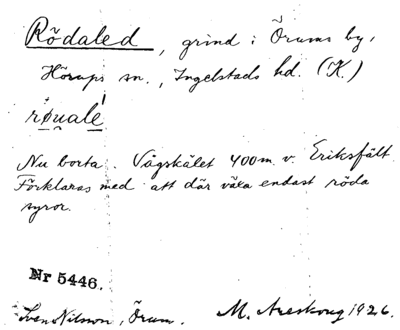 Rödaled, grind i Örums by,
Hörups sn., Ingelstads hd. (K.)
rø̀ualé
Nu borta. Vägskälet 400m v. Eriksfält.
Förklaras med att där växa endast röda
syror.
Nr 5446.
Sven Nilsson, Örum. M. Areskoug 1926.